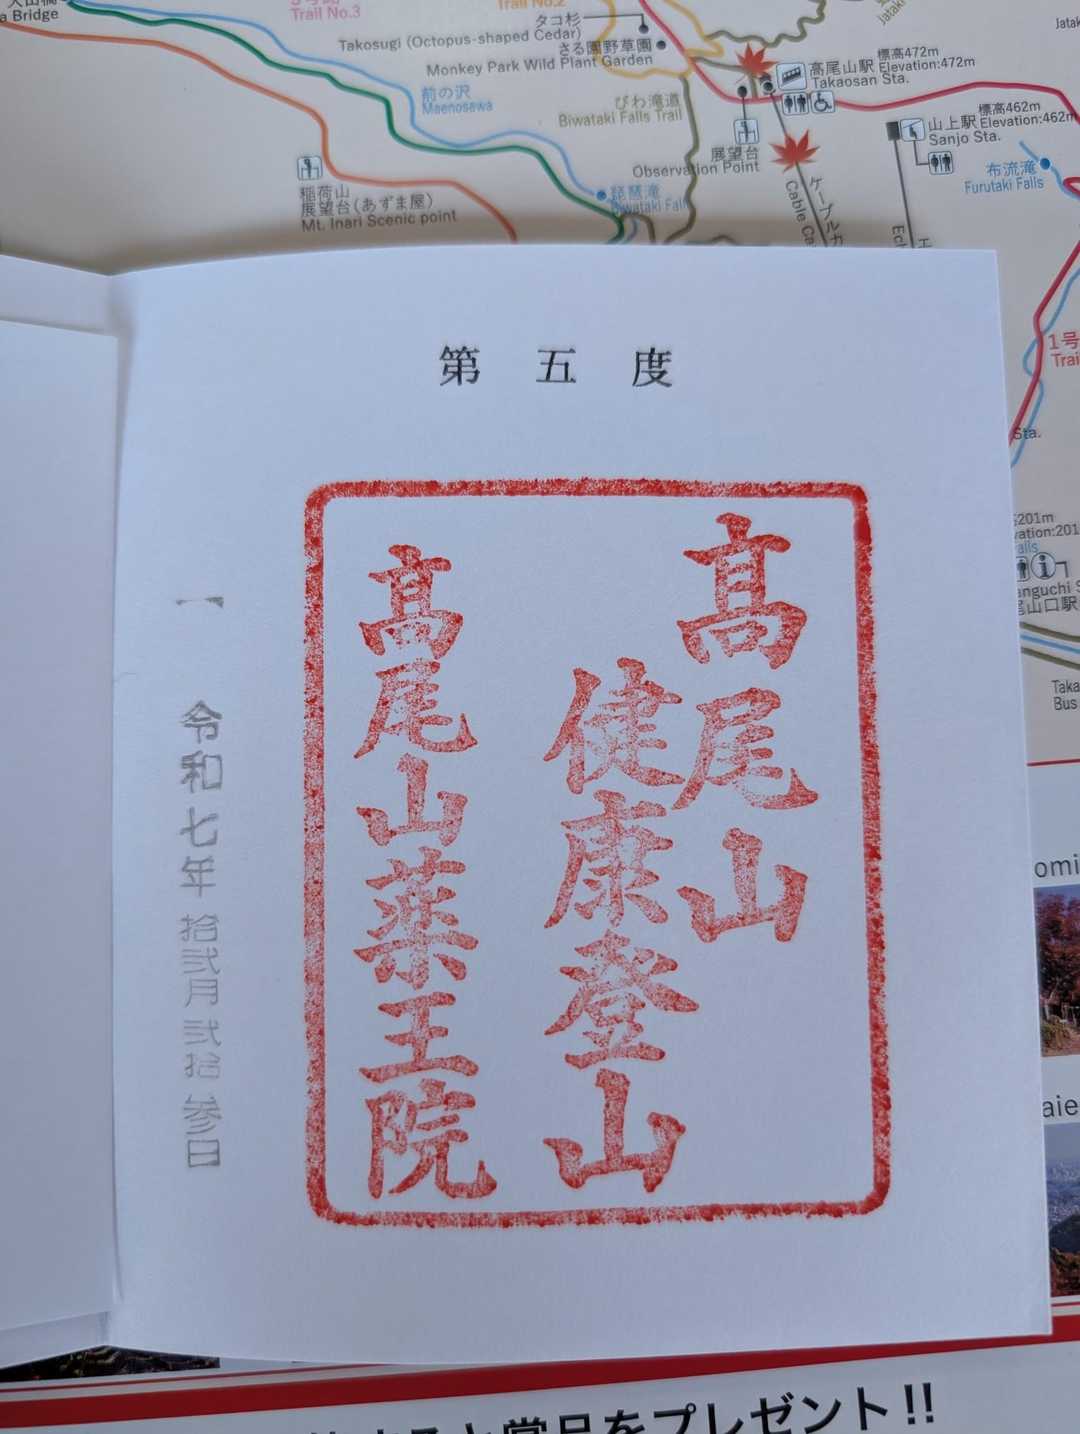 Bridge
Trail No.3
Trail No.2
タコ杉
Takosugi (Octopus-shaped Cedar)
さる園野草園
Monkey Park Wild Plant Garden
前の沢
Maenosawa
びわ滝道
Biwataki Falls Trail
高尾山駅 標高472m
Elevation:472m
Takaosan Sta.
標高462m
山上駅 Elevation:462m
Sanjo Sta.
展望台
Observation Point
布流滝
Furutaki Falls
稲荷山
展望台(あずま屋)
Mt. Inari Scenic point
琵琶滝
ケーブルカ
Cable Ca
1号
Trai
Sta.
201m
尾山口駅
Taka
Bus
第五度
髙尾山
健康登山
髙尾山薬王院
令和七年拾弐月弐拾参日
賞品をプレゼント!!